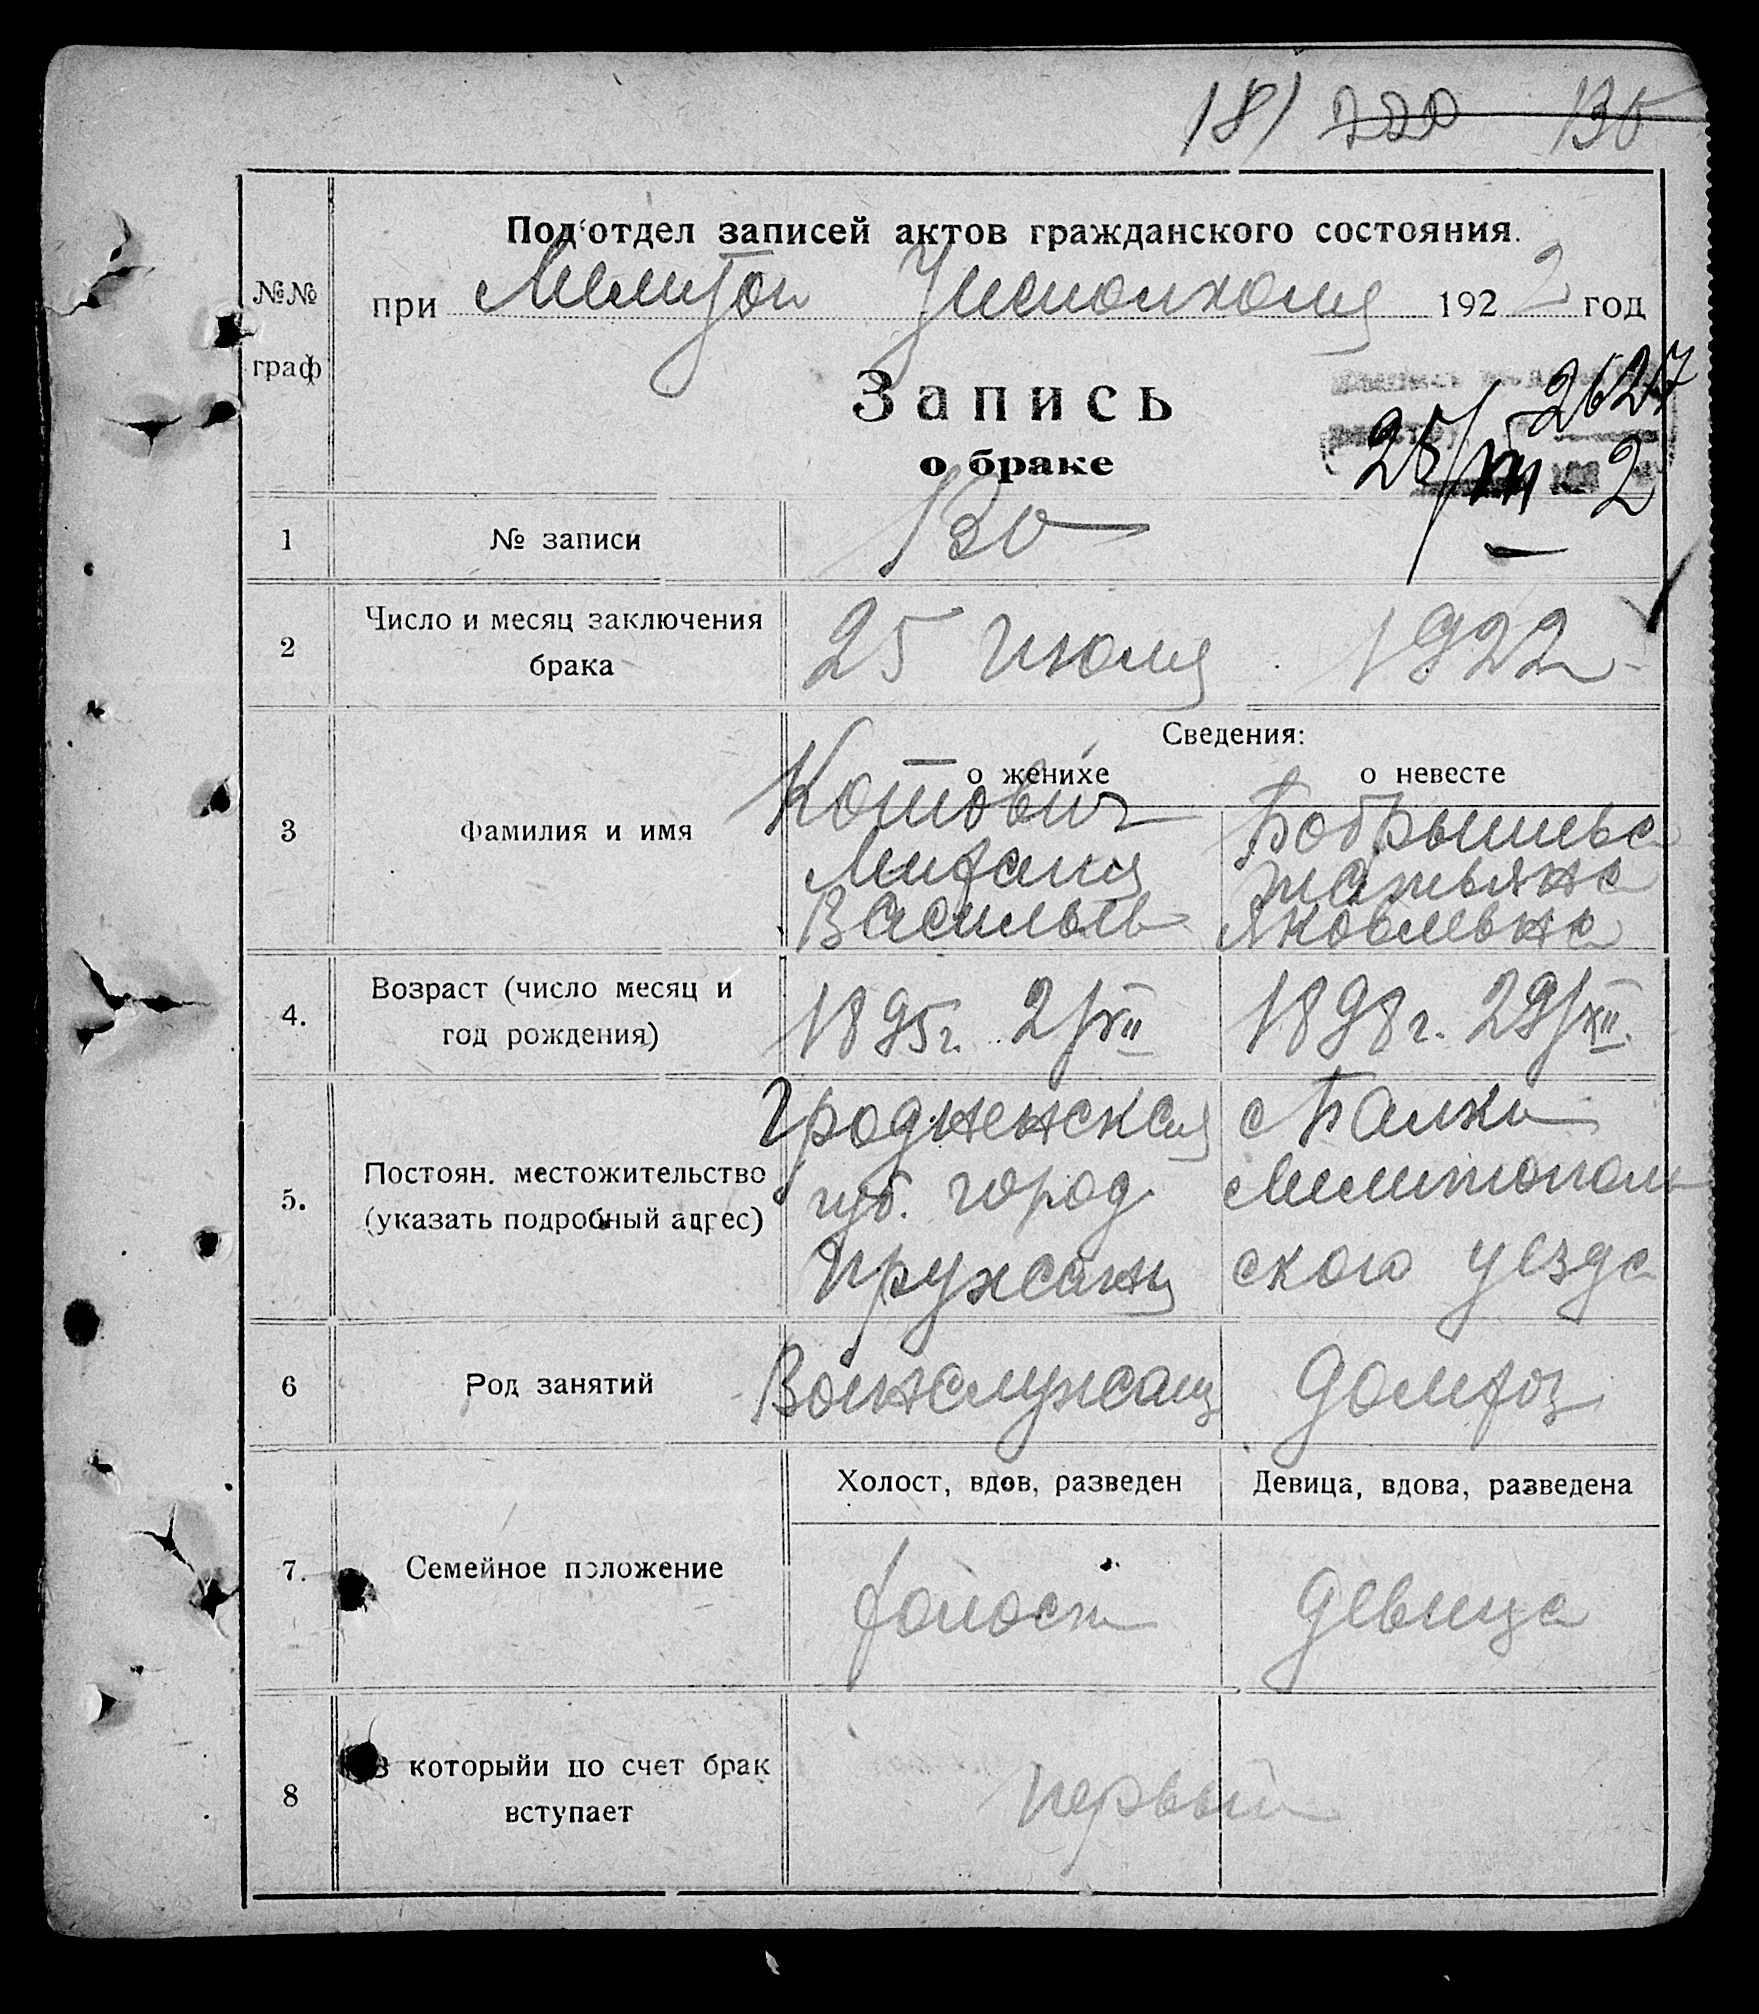 181 220 130
Под'отдел записей актов гражданского состояния.
№№ граф
при Мелитоп Уисполкома 1922 год
Запись
о браке
2627
25/VII 2
1 № записи 130
2 Число и месяц заключения брака 25 июля 1922
Сведения:
о женихе о невесте
3 Фамилия и имя
Котович Бобрышева
Михаил Татьяна
Васильев Яковлевна
4. Возраст (число месяц и год рождения) 1895г. 2/VII 1898г. 29/XII.
5. Постоян. местожительство (указать подробный адрес)
Гродненская с Балки
губ. город Мелитополь
Пружаны ского уезда
6 Род занятий Воинслужащ домхоз
Холост, вдов, разведен Девица, вдова, разведена
7. Семейное положение холост девица
8 В которыйи по счет брак вступает первый